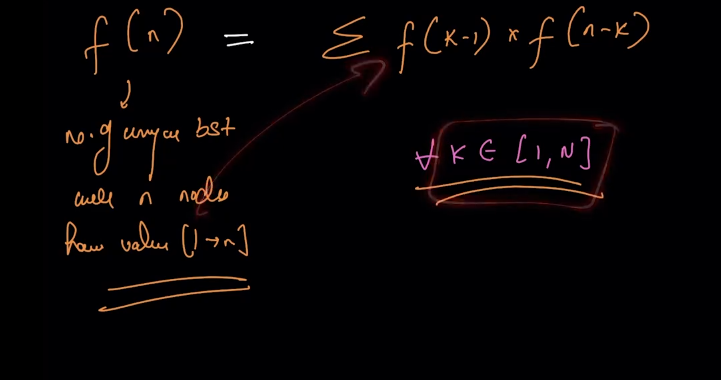 f(n) = Σ f(k-1) * f(n-k)
∀ K ∈ [1, N]
no. of unique bst
with n nodes
have value [1→n]